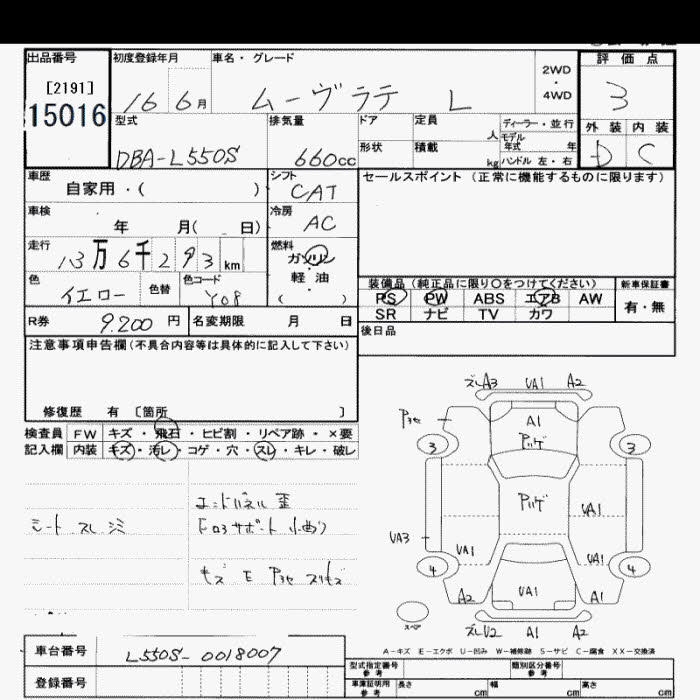 出品番号 初度登録年月 車名・グレード 2WD・4WD 評価点
[2191]
15016 16 6月 ムーヴラテ L 3
型式 排気量 ドア 定員 人 ディーラー・並行 外装 内装
モデル年式 年
DBA-L550S 660cc 形状 積載 kg ハンドル 左・右 D C
車歴 シフト セールスポイント (正常に機能するものに限ります)
自家用・( ) CAT
車検 冷房
年 月( 日) AC
走行 燃料
13万6千293km ガソリン・軽油
色 色替 色コード ( )
イエロー Y08
装備品 (純正品に限り○をつけてください) 新車保証書
PS PW ABS エアB AW 有・無
SR ナビ TV カワ
R券 9.200 円 名変期限 月 日
後日品
注意事項申告欄(不具合内容等は具体的に記入して下さい)
修復歴 有 〔箇所 〕
検査員 FW キズ・飛石・ヒビ割・リペア跡・×要
記入欄 内装 キズ・汚レ・コゲ・穴・スレ・キレ・破レ
エンドパネル 歪
シート スレ シミ
ズレA3 UA1 A2
A1
3 3
UA1
UA3
UA1 UA1
4 4
A2 UA1 A1
スペア
ズレU2 A1 A2
A-キズ E-エクボ U-凹み W-補修跡 S-サビ C-腐食 XX-交換済
車台番号 L550S-0018007
型式指定番号 参考 類別区分番号 参考
登録番号
車庫証明用 参考 長さ cm 幅 cm 高さ cm